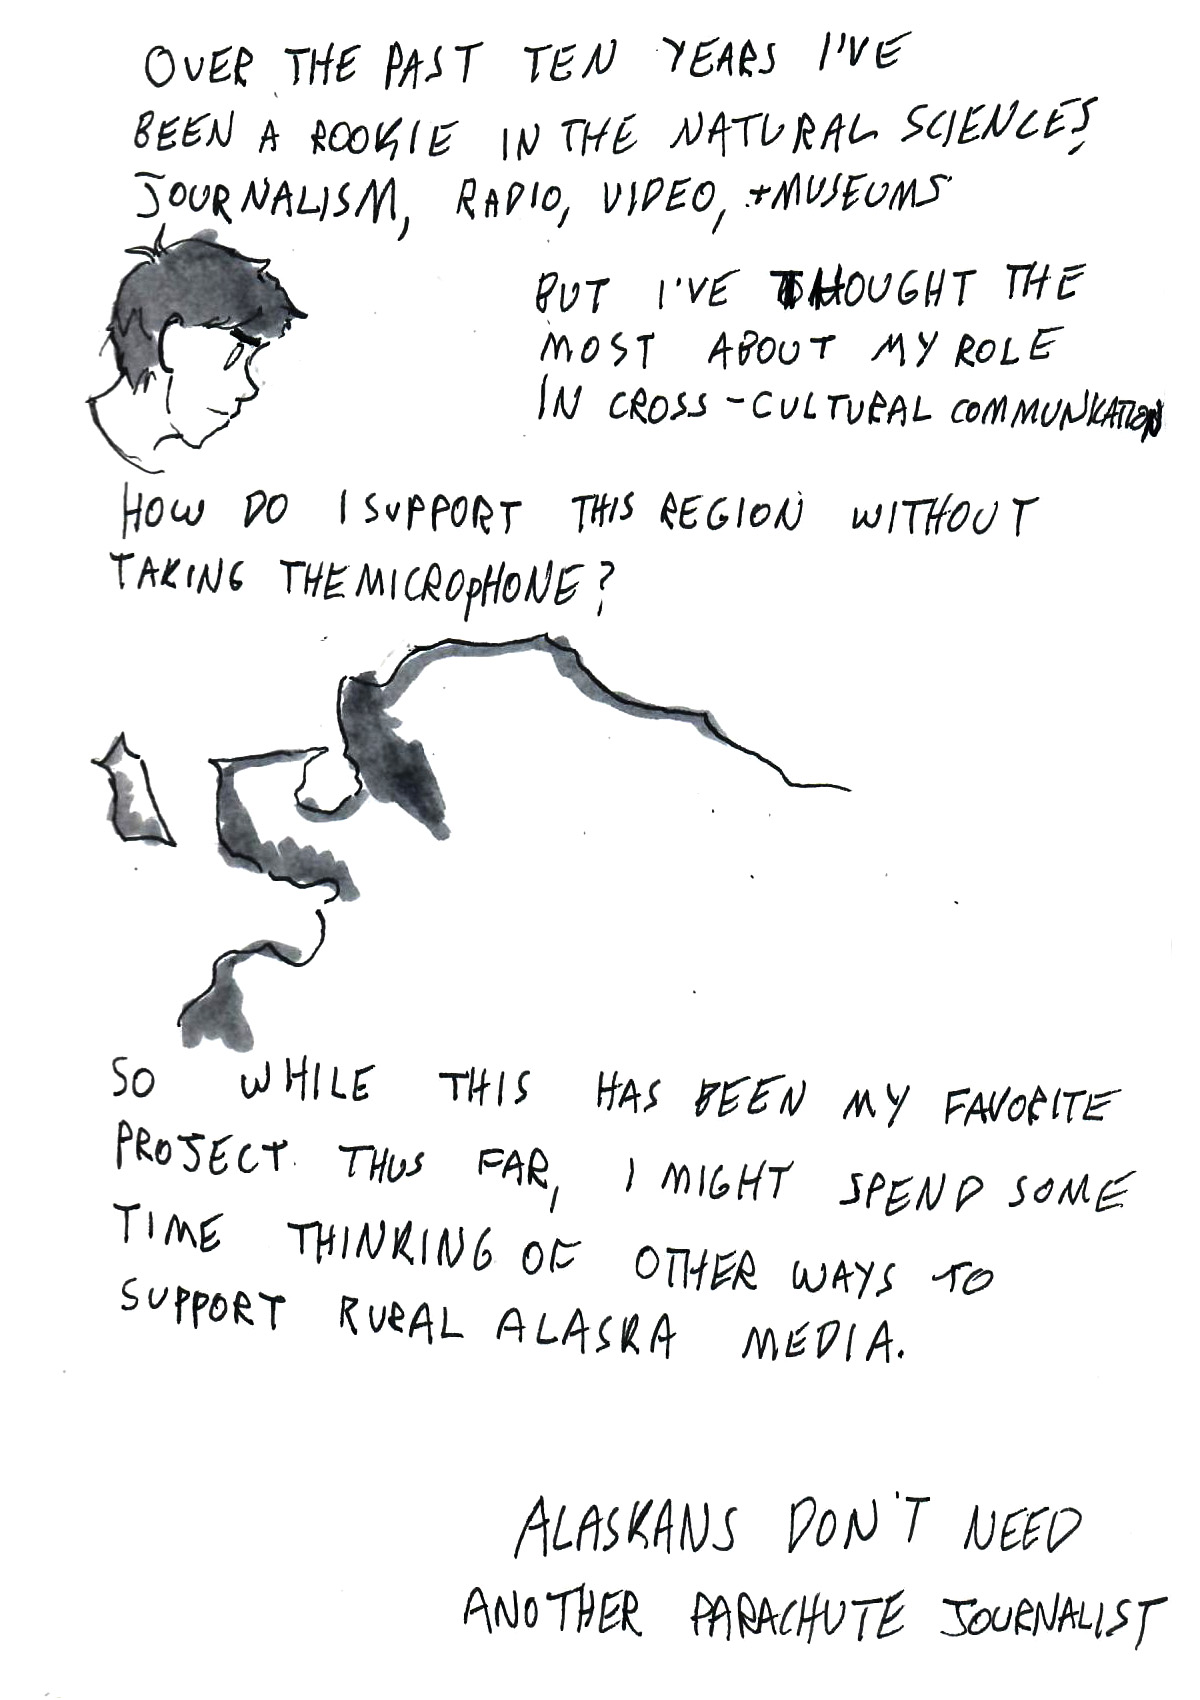 OVER THE PAST TEN YEARS I'VE
BEEN A ROOKIE IN THE NATURAL SCIENCES,
JOURNALISM, RADIO, VIDEO, + MUSEUMS
BUT I'VE THOUGHT THE
MOST ABOUT MY ROLE
IN CROSS-CULTURAL COMMUNICATION
HOW DO I SUPPORT THIS REGION WITHOUT
TAKING THE MICROPHONE?
SO WHILE THIS HAS BEEN MY FAVORITE
PROJECT THUS FAR, I MIGHT SPEND SOME
TIME THINKING OF OTHER WAYS TO
SUPPORT RURAL ALASKA MEDIA.
ALASKANS DON'T NEED
ANOTHER PARACHUTE JOURNALIST